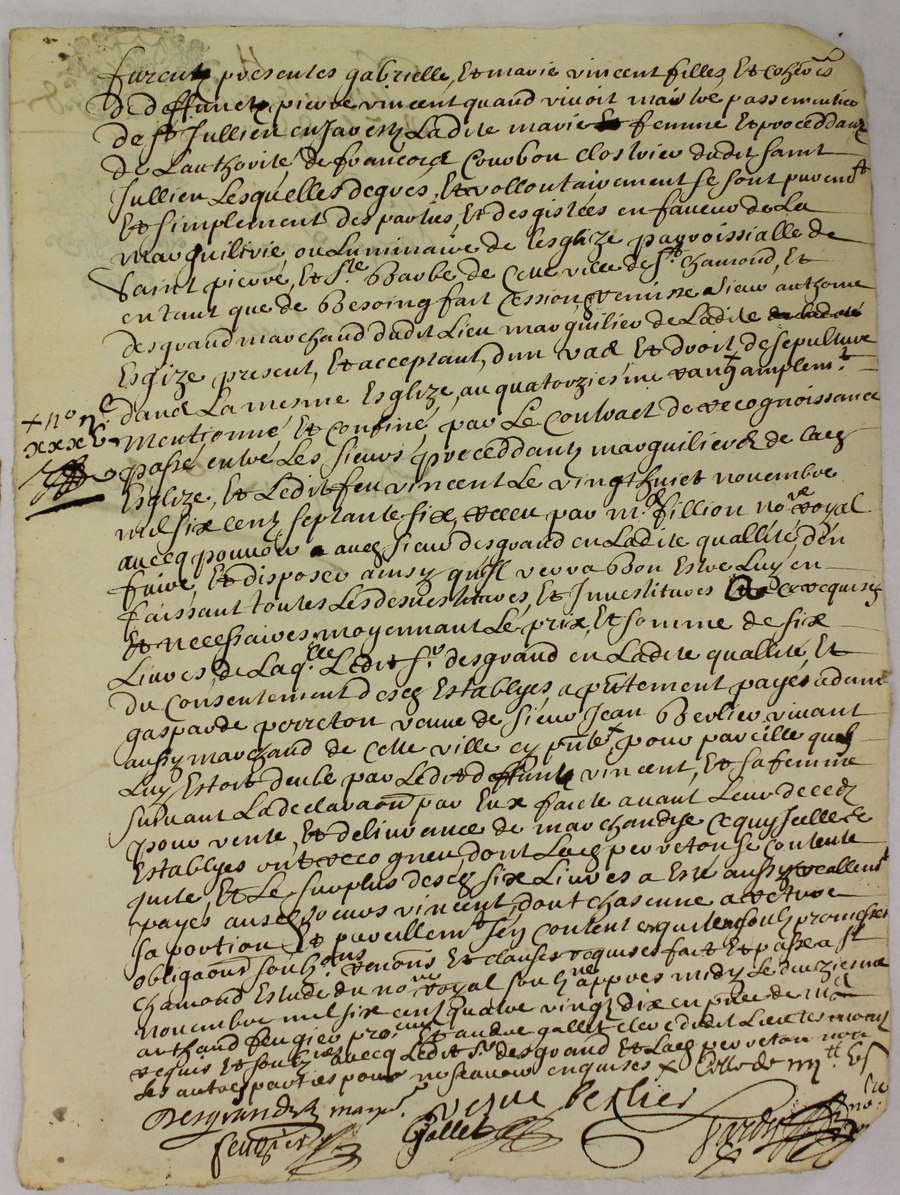 furent presentes gabrielle, Et marie vincent filles, Et coheres
de deffunct pierre vincent quand vivoit maistre passementier
de st Jullien en Jarestz Ladite marie femme Et proceddant
de Lauthorité de francois Courbon clostrier dudit saint
Jullien Lesquelles de gres, Et vollontairement se sont purem^t
Et simplement desparties, Et desgistées en faveur de La
marguilrie, ou Luminaire de lesglize parroissialle de
Saint pierre, Et s^te Barbe de cette ville de s^t chamond, Et
en tant que de Besoing fait Cession, & remise a sieur anthoine
desgrand marchand dudit Lieu marguilier de Ladite
Esglize present, Et acceptant, dun vas Et droit de sepulture
dans La mesme Esglize, au quatorziesme rang + amplem^t
+ n° n^e
xxx
mentionné, Et confiné, par Le Contract de recognoissance
passé entre Les sieurs proceddantz marguilliers de lad
Esglize, Et Ledit feu vincent Le vingt huict novembre
mil six cent septante six, receu par m^e fillion no^re royal
avecq pouvoir aud sieur desgrand en Ladite quallité, den
faire, Et disposer ainsy quil verra Bon Estre Luy en
faissant toutes Les desvestitures, Et Investitures requises
Et necessaires, moyennant Le prix, Et somme de six
Livres, de Laq^lle Ledit s^r desgrand en Ladite quallité, Et
du Consentement desd Establyes, a p^ntement payés a dame
gasparde perreton veuve de sieur Jean Berlier vivant
aussy marchand de cette ville cy p^nte, pour pareille quil
Luy Estoit deube par Ledit deffunt vincent, Et sa femme
suivant La declaraon par Eux faicte avant Leur deced
pour vente, Et delivrance de marchandise ce quy Icelle
Establyes ont recogneu, dont Lad perreton se contente
quite, Et Le surplus desd six Livres a Esté aussy reallem^t
payés ausd soeurs vincent, dont chascune a retiré
sa portion Et pareillem^t sen content
obligaons soubz^ons renons Et clauses requises fait Et passé a s^t
chamond Estude du no^re royal soub^ne appres midy Le
novembre mil six cent quatre vingt dix en p^nce de m^e
arthaud feugier pro^eur Et andre gallet clerc dudit Lieu tesmoins
requis Et soubz^nez avecq Ledit s^r desgrand Et Lad perreton non
Les autres parties pour ne scavoir enquises
Desgrand marg^r
vefve berlier
feugier
Gallet